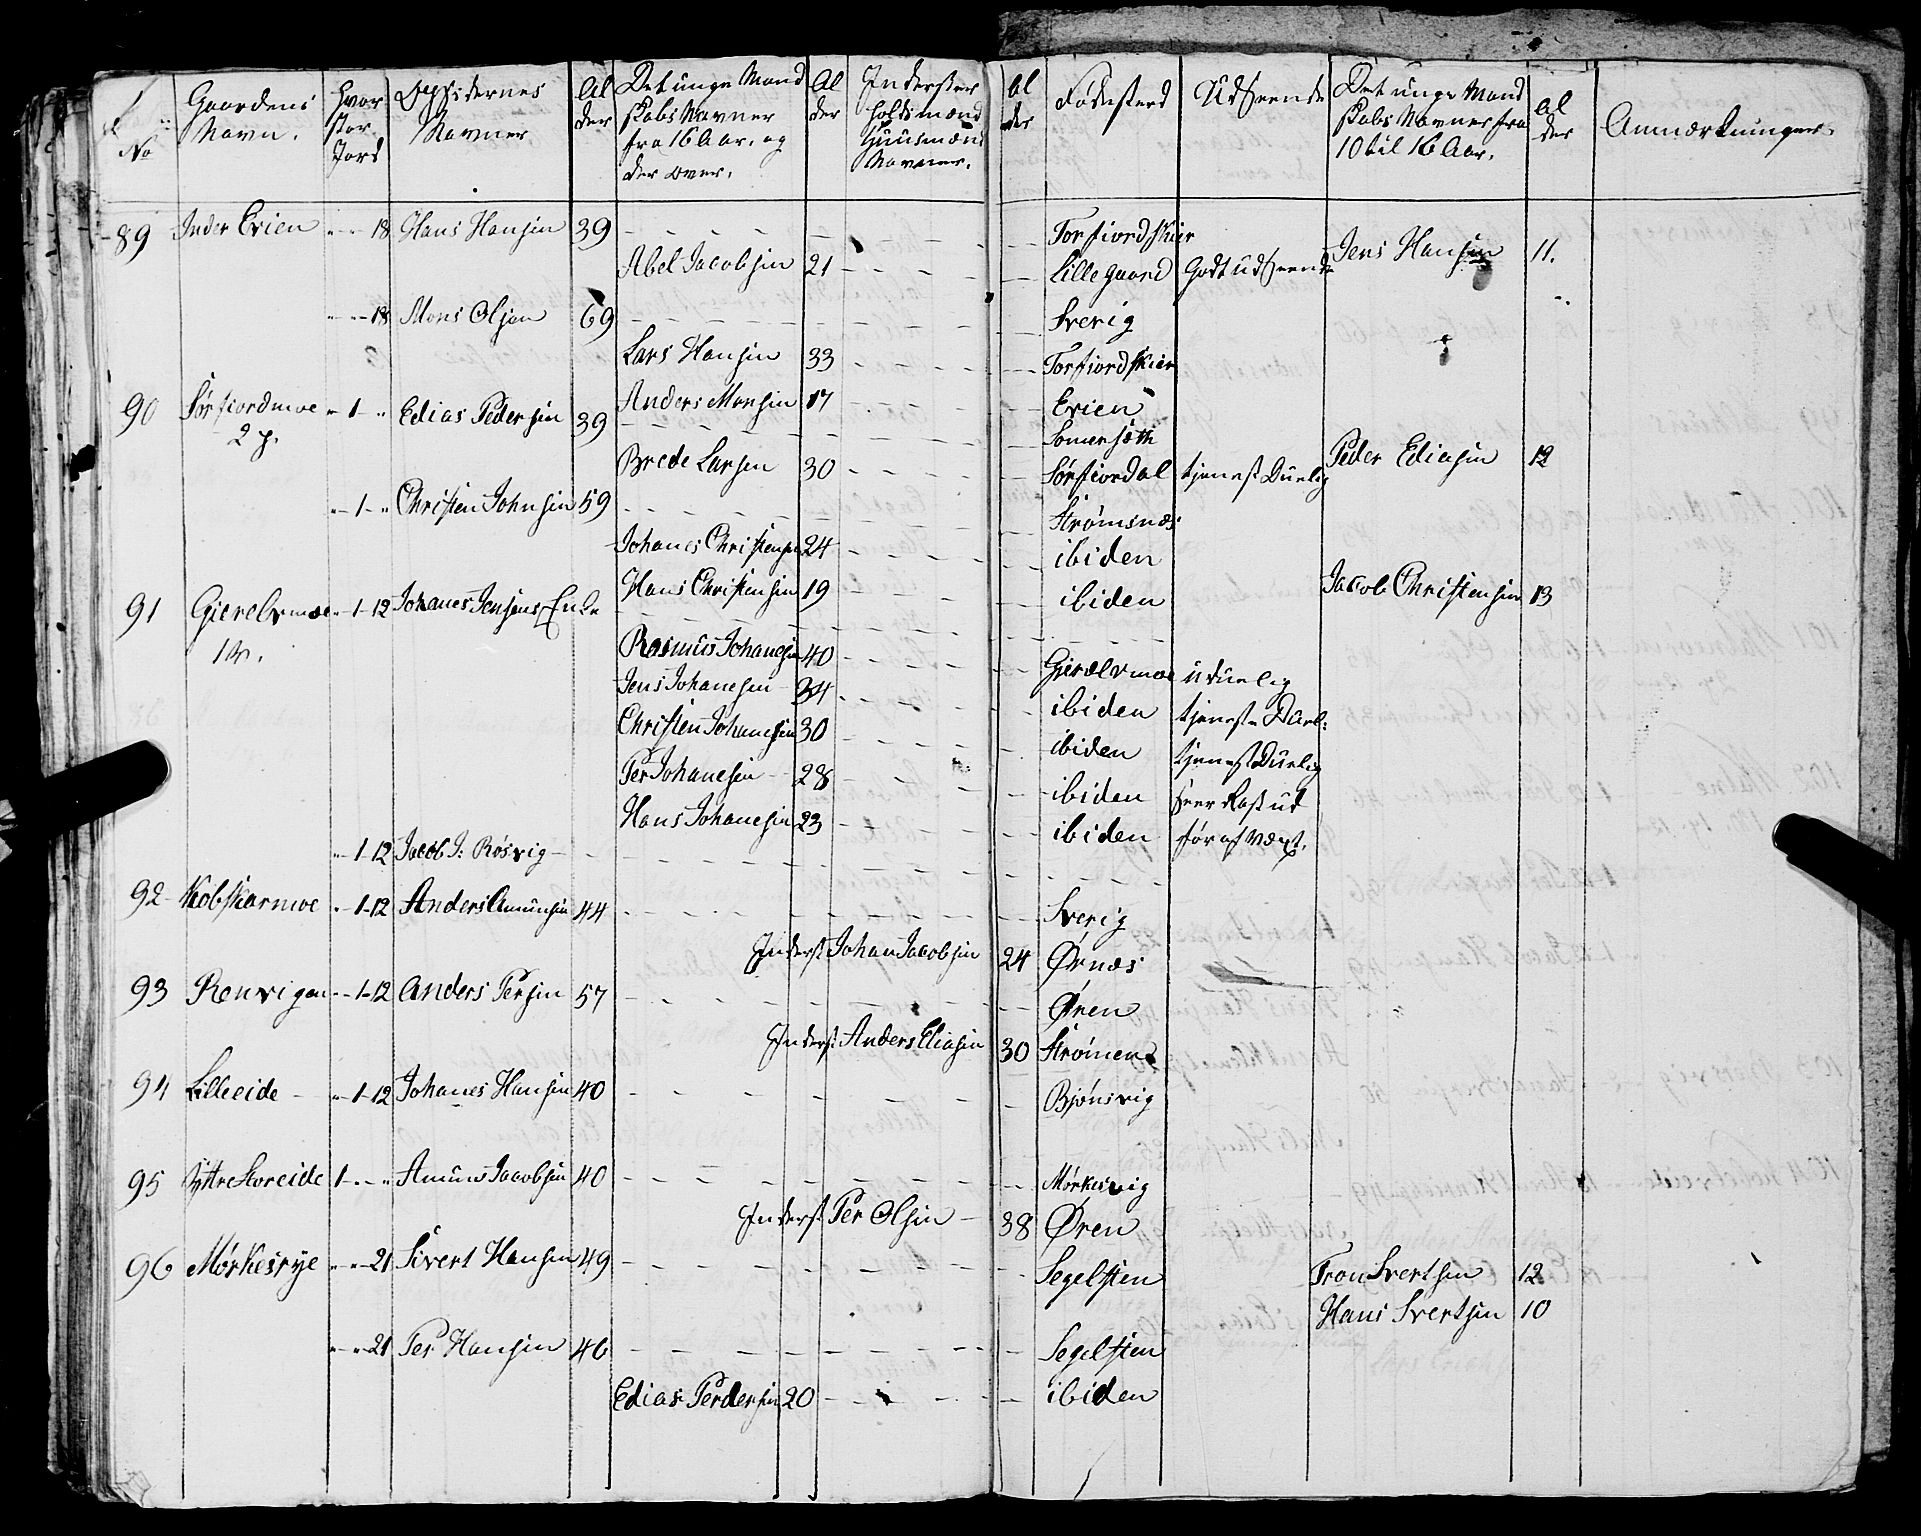 No
Gaardens Navn.
Hvor stor Jord
Opsidernes Navner
Al der
Det unge Mand skabs Navner fra 16 Aar, og der over.
Al der
Inderster Holdsmænd Huusmænd Navner.
Al der
Fødesterd
Udseende
Det unge Mand skabs Navner fra 10 til 16 Aar.
Al der
Anmærkninger
89 Inder Evien " - " 18 Hans Hansen 39 Torfiordskier
Abel Jacobsen 21 Lillegaard Godt udseende Jens Hansen 11.
" - " 18 Mons Olsen 69 Sverig
Lars Hansen 33 Torfiordskier
Anders Monsen 17 Evien
90 Sørfiordmoe " 1 " Edias Pedersen 39 Somersæth
2 p.
Brede Larsen 30 Sørfiordal tjenest Duelig Peder Ediasen 12
" 1 " Christen Johnsen 59 Strømsnæs
Johanes Christensen 24 ibiden
Hans Christensen 19 ibiden Jacob Christensen 13
91 Gierelvmoe " 1 - 12 Johanes Jensens Enke
Rasmus Johanesen 40 Gierælvmoe uduelig
Jens Johanesen 34 ibiden tjeneste Duel:
Christen Johanesen 30 ibiden tjenest Duelig
Per Johanesen 28 ibiden seer Rask ud
Hans Johanesen 23 ibiden før af Væxt.
" 1 - 12 Jacob J: Røsvig
92 Kobskarmoe " 1 - 12 Anders Amunsen 44 Sverig
Inderst Johan Jacobsen 24 Ørnæs
93 Renvigen " 1 - 12 Anders Persen 57 Øren
Inderst Anders Eliasen 30 Strømen
94 Lilleeide " 1 - 12 Johanes Hansen 40 Bjønsvig
95 Yttre Storeide 1 - " - " Amuns Jacobsen 40 Mørkesvig
Inderst Per Olsen 38 Øren
96 Mørkesrye " " 21 Sivert Hansen 49 Segelsten Tron Svertsen 12
Hans Svertsen 10
" " 21 Per Hansen 46 Segelsten
Edias Perdersen 20 ibiden